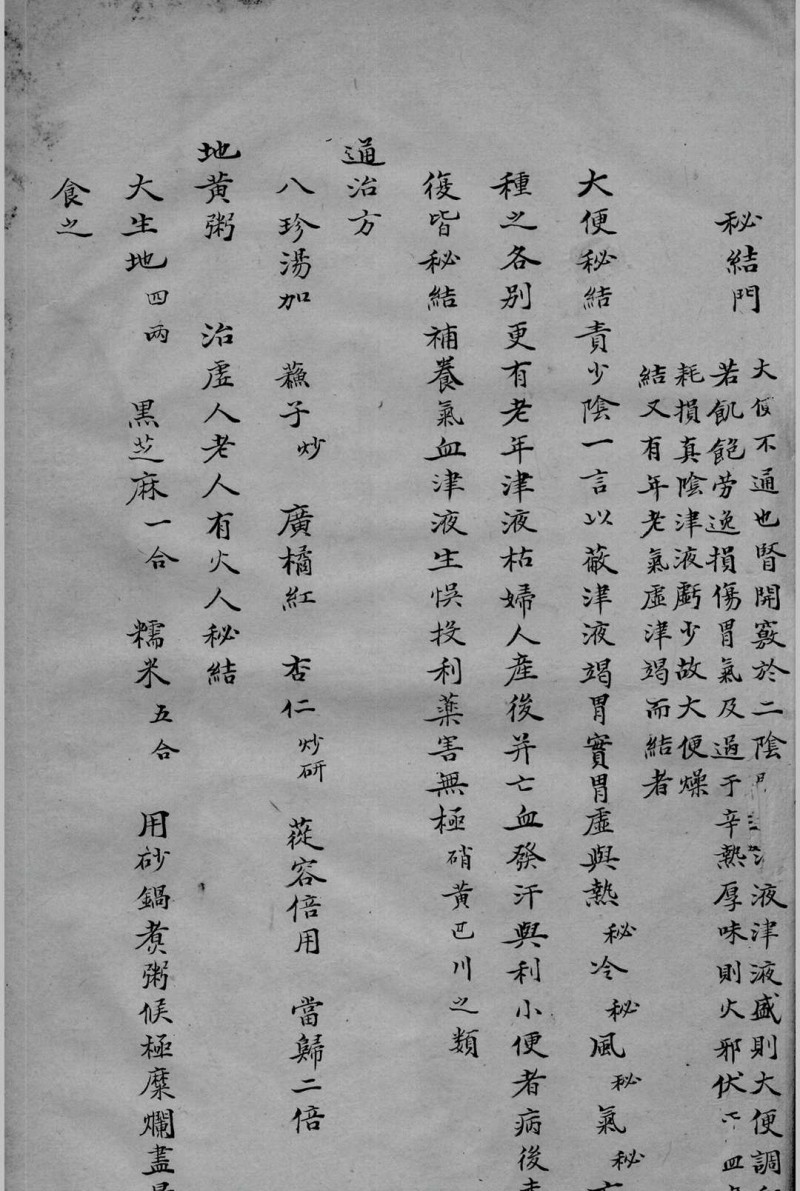 秘結門
大便不通也腎開竅於二陰 液津液盛則大便調
若飢飽勞逸損傷胃氣及過于辛熱厚味則火邪伏 血
耗損真陰津液虧少故大便燥
結又有年老氣虛津竭而結者
大便秘結責少陰一言以蔽津液竭胃實胃虛與熱秘冷秘風秘氣秘
種之各別更有老年津液枯婦人產後并亡血發汗與利小便者病後
復皆秘結補養氣血津液生悞投利藥害無極硝黃巴川之類
通治方
八珍湯加 蘓子炒 廣橘紅 杏仁炒研 蓯容倍用 當歸二倍
地黃粥 治虛人老人有火人秘結
大生地四兩 黑芝麻一合 糯米五合 用砂鍋煮粥候極糜爛盡
食之